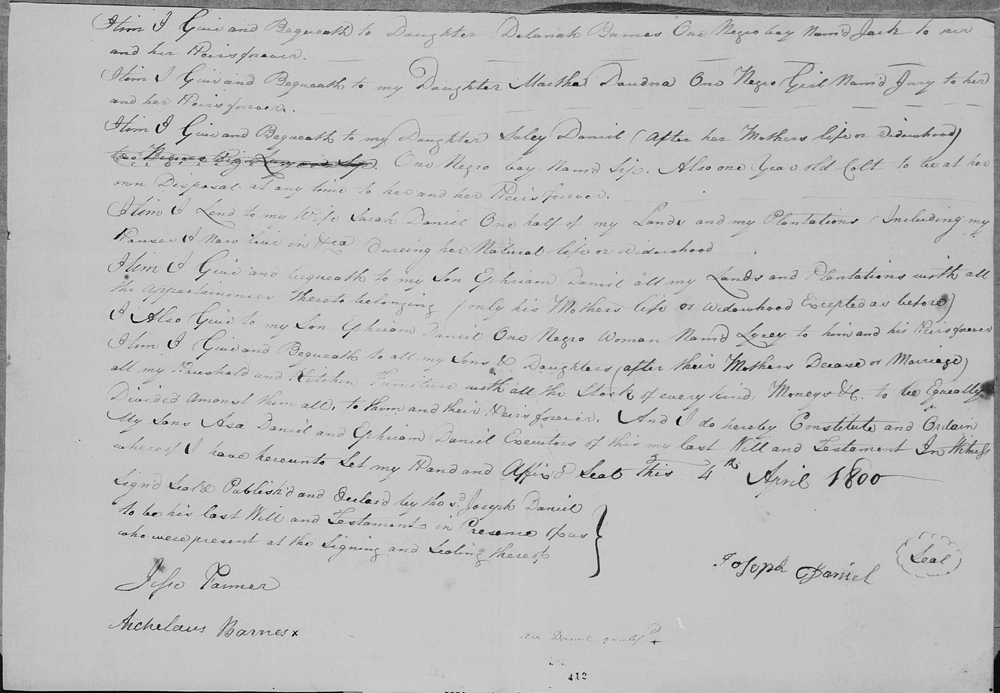 Itim I Give and Bequeath to Daughter Delanah Barnes One Negro boy Namd Jack to her
and her Heirs forever.
Itim I Give and Bequeath to my Daughter Martha Daudna One Negro Girl Namd Jury to her
and her Heirs forever.
Itim I Give and Bequeath to my Daughter Saley Daniel (After her Mothers life or widowhood)
One Negro boy Namd Sip. Also one Year old Colt to be at her
own Disposal at any time to her and her Heirs forever.
Itim I Lend to my Wife Sarah Daniel One half of my Lands and my Plantations Including my
Houses I Now live in &ca Dureing her Natural life or widowhood
Itim I Give and bequeath to my Son Ephriam Daniel all my Lands and Plantations with all
the appertainencies thereto belonging (only his Mothers life or widowhood Excepted as before)
I Also Give to my Son Ephriam Daniel One Negro Woman Namd Lucey to him and his Heirs forever
Itim I Give and Bequeath to all my Sons & Daughters (after their Mothers Decease or Marriage)
all my Household and Kitchin Furniture with all the Stock of every kind, Moneys &c. to be Equally
Divided amonst them all, to them and their Heirs forever. And I do hereby Constitute and Ordain
My Sons Asa Daniel and Ephriam Daniel Executors of this my last Will and Testament In Witness
whereof I have hereunto Set my Hand and Affix'd Seal this 4th April 1800
Sign'd Seal'd Publish'd and Declar'd by the sd. Joseph Daniel
to be his last Will and Testament in Presence of us
who were present at the Signing and Sealing thereof
Joseph Daniel Seal
Jesse Farmer
Archelaus Barnes x
Daniel qualifd
412